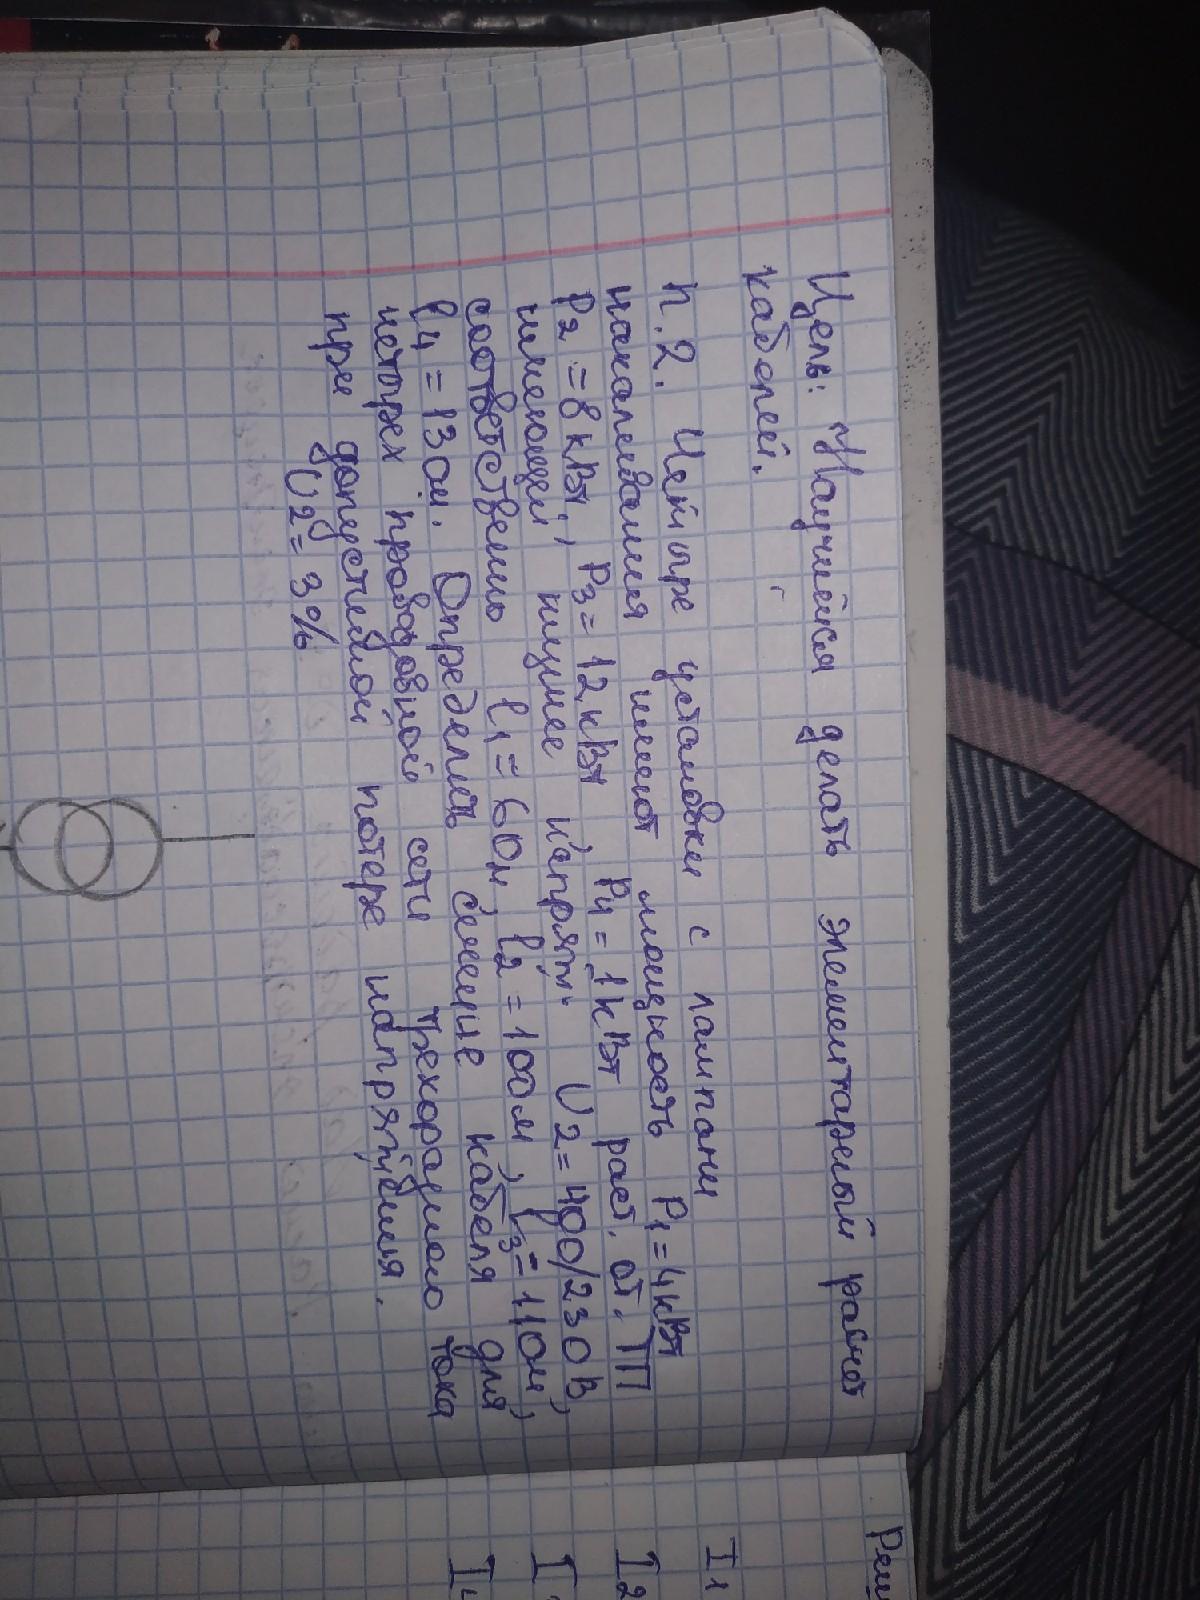 Цель: Научийся делать элементарный расчет
кабелей.
п.2. Четыре установки с лампами
накаливания имеют мощность P1=4кВт
P2=8кВт, P3=12кВт P4=1кВт раст. от. ТП
имеющей низшее напряж. U2=400/230В,
соответственно l1=60м, l2=100м, l3=110м,
l4=130м. Определить сечение кабеля для
четырех проводной сети трехфазного тока
при допустимой потере напряжения.
U2=3%
Реш
I1
I2
I
I4